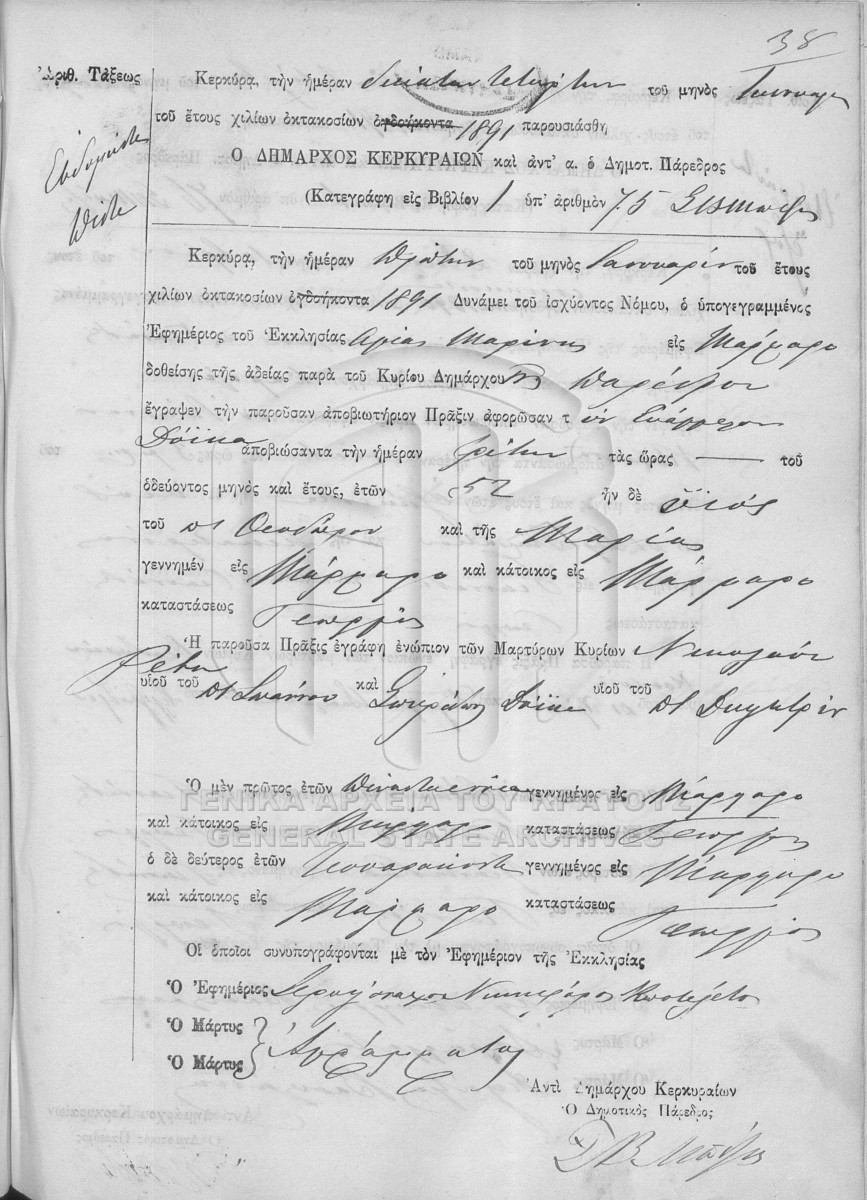 38
Ἀριθ. Τάξεως
Ἑβδομήντα
πέντε
Κερκύρᾳ, τὴν ἡμέραν δεκάτην τετάρτην τοῦ μηνὸς
τοῦ ἔτους χιλίων ὀκτακοσίων ὀγδοήκοντα 1891 παρουσιάσθη
Ο ΔΗΜΑΡΧΟΣ ΚΕΡΚΥΡΑΙΩΝ καὶ ἀντ' α. ὁ Δημοτ. Πάρεδρος
(Κατεγράφη εἰς Βιβλίον 1 ὑπ' ἀριθμὸν 75
Κερκύρᾳ, τὴν ἡμέραν πρώτην τοῦ μηνὸς Ἰανουαρίου τοῦ ἔτους
χιλίων ὀκτακοσίων ὀγδοήκοντα 1891 Δυνάμει τοῦ ἰσχύοντος Νόμου, ὁ ὑπογεγραμμένος
Ἐφημέριος τοῦ Ἐκκλησίας Αγίας Μαρίνης εἰς Μάρμαρο
δοθείσης τῆς ἀδείας παρὰ τοῦ Κυρίου Δημάρχου Παρέδρου
ἔγραψεν τὴν παροῦσαν ἀποβιωτήριον Πρᾶξιν ἀφορῶσαν τ ὸν Ευάγγελον
Δόϊκα ἀποβιώσαντα τὴν ἡμέραν τρίτην τὰς ὥρας — τοῦ
ὁδεύοντος μηνὸς καὶ ἔτους, ἐτῶν 52 ἦν δὲ υἱός
τοῦ πτ Θεοδώρου καὶ τῆς Μαρίας
γεννημέν εἰς Μάρμαρο καὶ κάτοικος εἰς Μάρμαρο
καταστάσεως Γεωργός
Ἡ παροῦσα Πρᾶξις ἐγράφη ἐνώπιον τῶν Μαρτύρων Κυρίων Νικολάου
υἱοῦ τοῦ πτ Ιωάννου καὶ Σπυρίδων Δόϊκα υἱοῦ τοῦ πτ Δημητρίου
Ὁ μὲν πρῶτος ἐτῶν πενήντα εννέα γεννημένος εἰς Μάρμαρο
καὶ κάτοικος εἰς Μάρμαρο καταστάσεως Γεωργός
ὁ δὲ δεύτερος ἐτῶν τεσσαράκοντα γεννημένος εἰς Μάρμαρο
καὶ κάτοικος εἰς Μάρμαρο καταστάσεως Γεωργός
Οἱ ὁποῖοι συνυπογράφονται μὲ τὸν Ἐφημέριον τῆς Ἐκκλησίας
Ὁ Ἐφημέριος Ιερομόναχος Νικηφόρος
Ὁ Μάρτυς
Ὁ Μάρτυς } Αγράμματοι
Ἀντὶ Δημάρχου Κερκυραίων
Ὁ Δημοτικὸς Πάρεδρος
ΓΕΝΙΚΑ ΑΡΧΕΙΑ ΤΟΥ ΚΡΑΤΟΥΣ
GENERAL STATE ARCHIVES